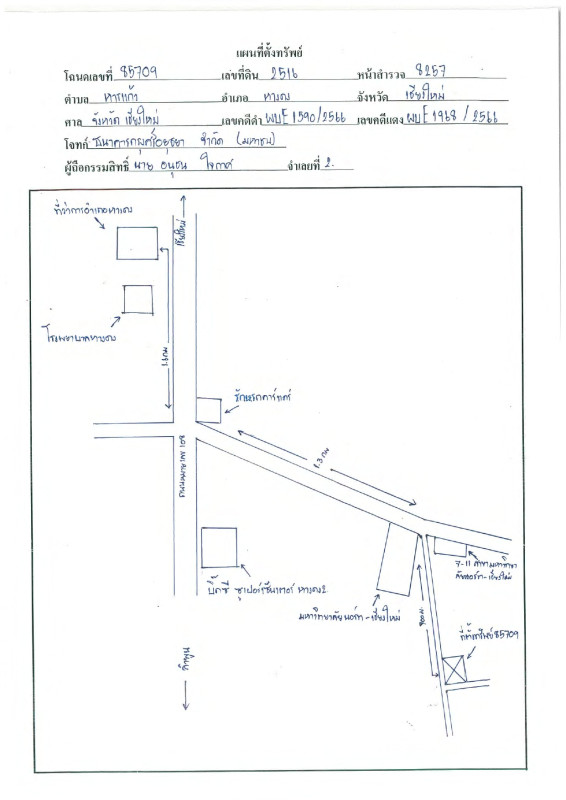 แผนที่ตั้งทรัพย์
โฉนดเลขที่ 85709 เลขที่ดิน 2516 หน้าสำรวจ 8257
ตำบล หารแก้ว อำเภอ หางดง จังหวัด เชียงใหม่
ศาล จังหวัด เชียงใหม่ เลขคดีดำ ผบE 1590/2566 เลขคดีแดง ผบE 1968/2566
โจทก์ ธนาคารกรุงศรีอยุธยา จำกัด (มหาชน)
ผู้ถือกรรมสิทธิ์ นาย อนุชน จำเลยที่ 2.
ที่ว่าการอำเภอหางดง
เชียงใหม่
โรงพยาบาลหางดง
1.6 กม
รักษ์รถคาร์แคร์
ถนนหมายเลข 108
1.3 กม
บิ๊กซี ซุปเปอร์เซ็นเตอร์ หางดง2
มหาวิทยาลัยนอร์ท-เชียงใหม่
7-11 สาขามหาวิทยา
ลัยนอร์ท-เชียงใหม่
900 ม.
ที่ตั้งทรัพย์ 85709
ลำพูน